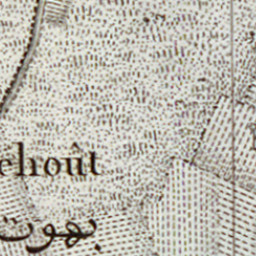 ehoût
بهوت